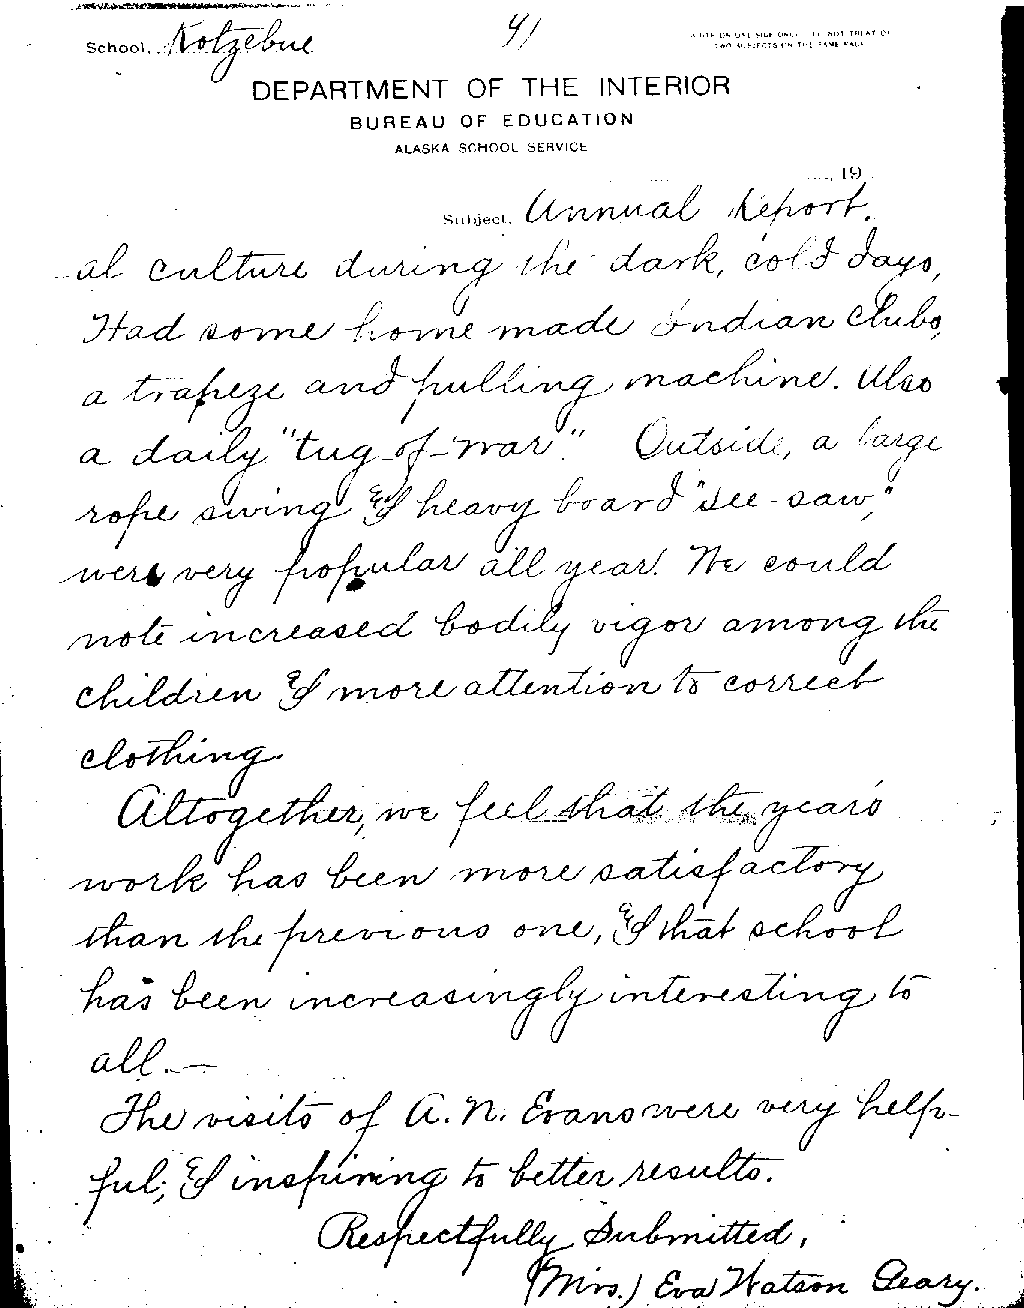 School, Kotzebue
41
WRITE ON ONE SIDE ONLY. DO NOT TREAT OF
TWO SUBJECTS ON THE SAME PAGE
DEPARTMENT OF THE INTERIOR
BUREAU OF EDUCATION
ALASKA SCHOOL SERVICE
, 19
Subject, Annual Report.
al culture during the dark, cold days,
Had some home made Indian clubs,
a trapeze and pulling machine. Also
a daily "tug-of-war". Outside, a large
rope swing & heavy board "see-saw,"
were very popular all year. We could
note increased bodily vigor among the
children & more attention to correct
clothing.
Altogether, we feel that the year's
work has been more satisfactory
than the previous one, & that school
has been increasingly interesting to
all.—
The visits of A. N. Evans were very help-
ful; & inspiring to better results.
Respectfully Submitted,
(Mrs.) Eva Watson Geary.